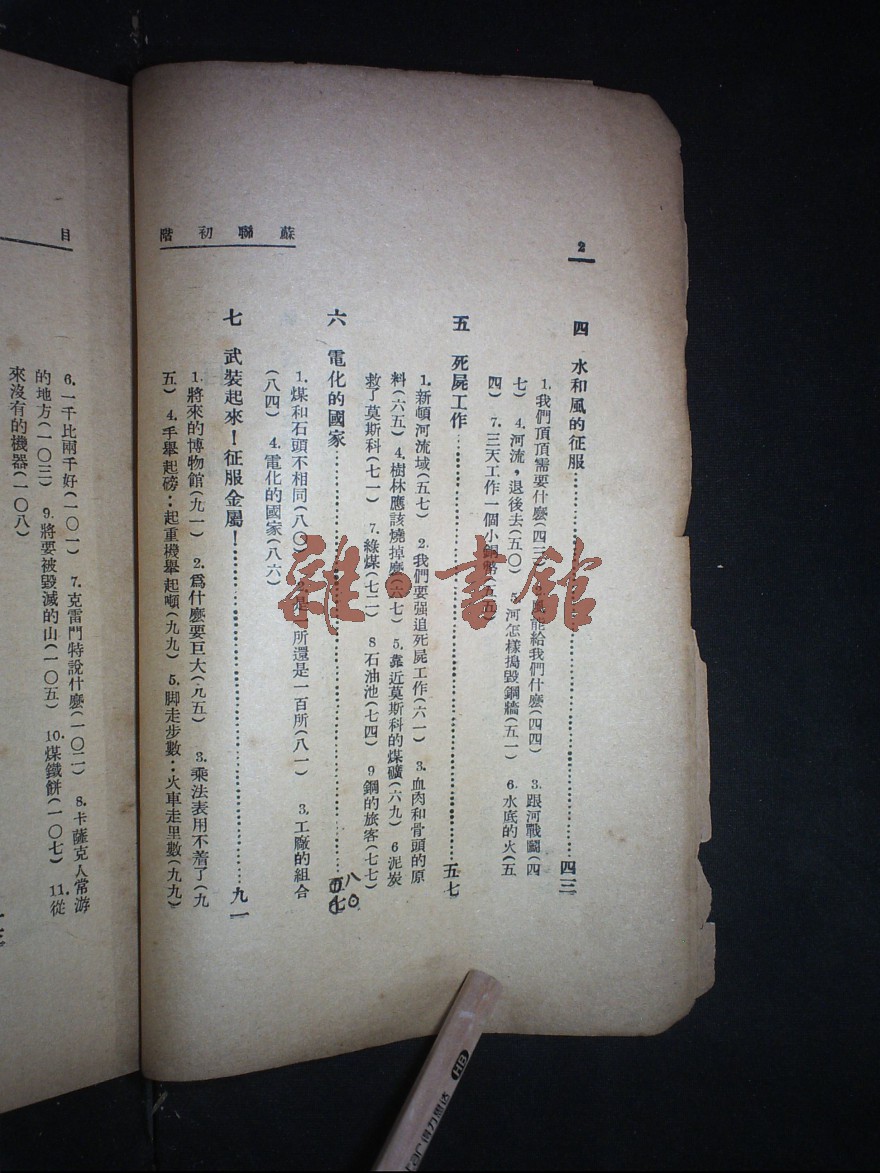 2
蘇聯初階
四 水和風的征服……四三
1. 我們頂頂需要什麼(四三) 風能給我們什麼(四四) 3. 跟河戰鬬(四
七) 4. 河流，退後去(五〇) 5. 河怎樣搗毀鋼牆(五一) 6. 水底的火(五
四) 7. 三天工作一個小銅幣(五五)
五 死屍工作……五七
1. 新頓河流域(五七) 2. 我們要强迫死屍工作(六一) 3. 血肉和骨頭的原
料(六五) 4. 樹林應該燒掉麼(六七) 5. 靠近莫斯科的煤礦(六九) 6 泥炭
救了莫斯科(七一) 7. 綠煤(七二) 8 石油池(七四) 9 鋼的旅客(七七)
六 電化的國家……五七 八〇
1. 煤和石頭不相同(八〇) 2. 是一所還是一百所(八一) 3. 工廠的組合
(八四) 4. 電化的國家(八六)
七 武裝起來！征服金屬！……九一
1. 將來的博物館(九一) 2. 爲什麼要巨大(九五) 3. 乘法表用不着了(九
五) 4. 手舉起磅：起重機舉起噸(九九) 5. 脚走步數：火車走里數(九九)
目
6. 一千比兩千好(一〇一) 7. 克雷門特說什麼(一〇二) 8. 卡薩克人常游
的地方(一〇三) 9. 將要被毀滅的山(一〇五) 10. 煤鐵餅(一〇七) 11. 從
來沒有的機器(一〇八)
雜·書館
HB
得力思达